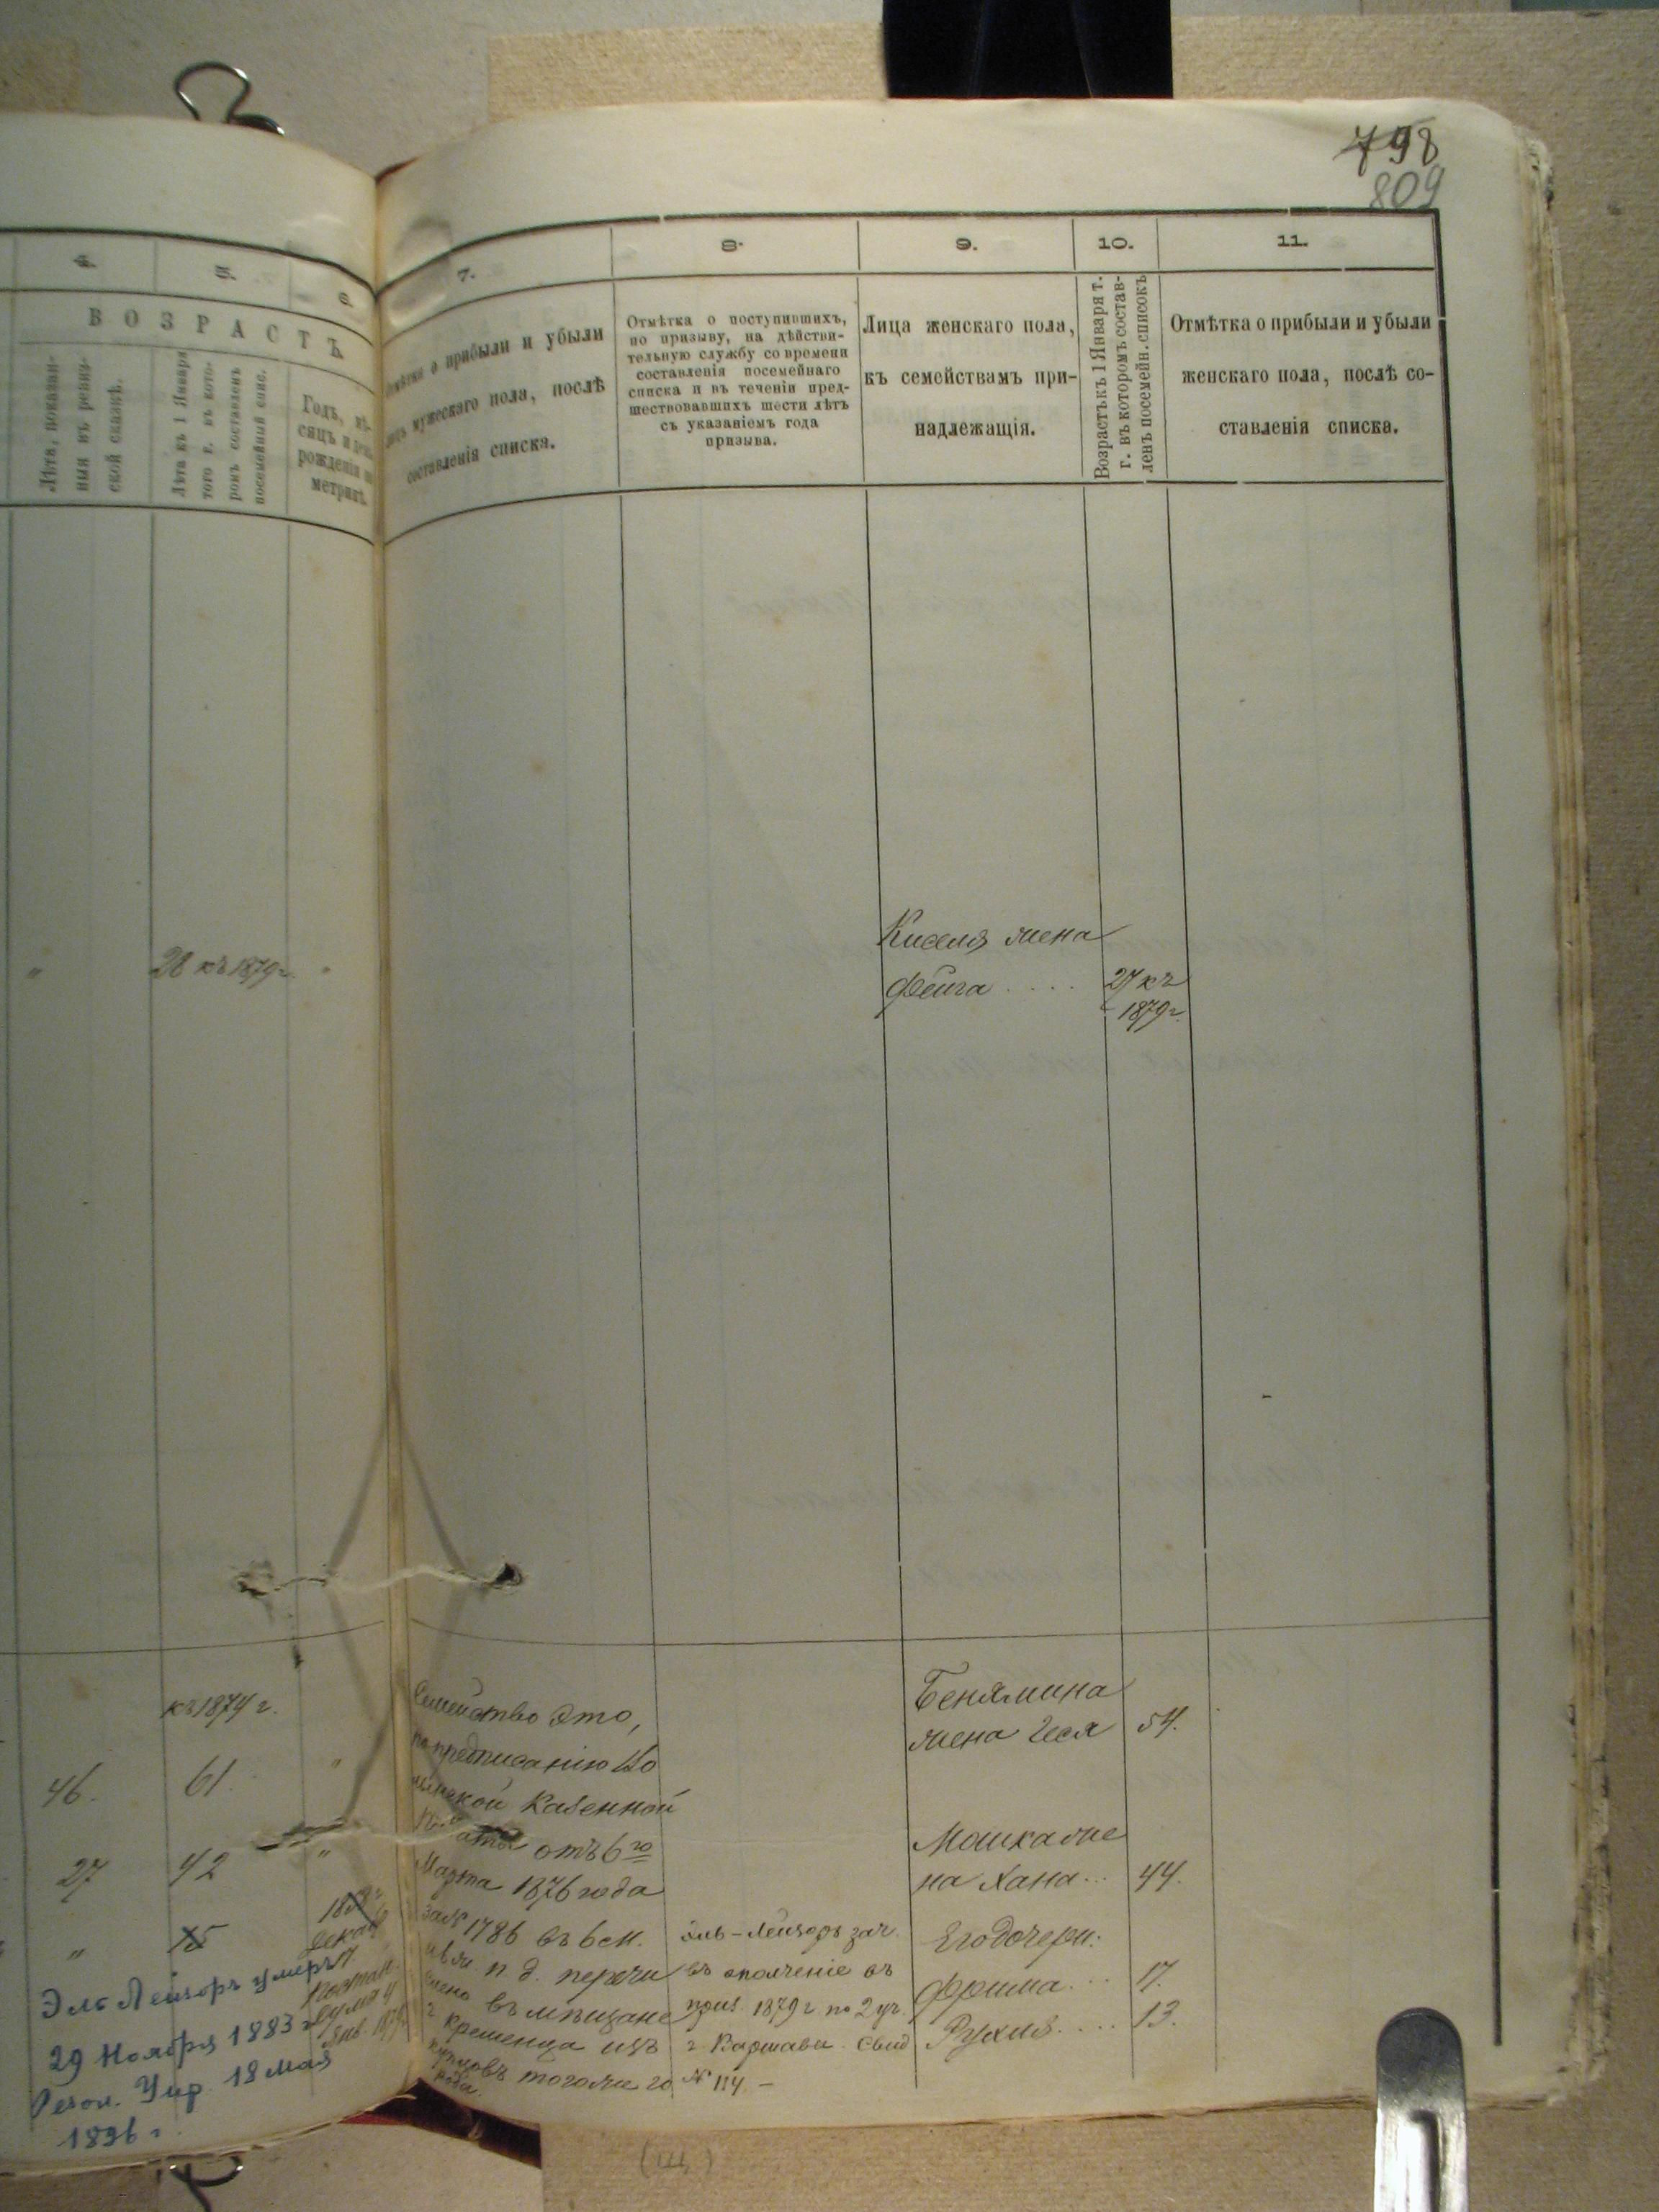 798
809
4.
5.
6.
ВОЗРАСТЪ
Лѣта, показан-
ныя въ ревиз-
ской сказкѣ.
Лѣта къ 1 Января
того г. въ кото-
ромъ составленъ
посемейный спис.
Годъ, мѣ-
сяцъ и день
рожденія по
метрикѣ.
7.
о прибыли и убыли
лицъ мужескаго пола, послѣ
составленія списка.
8.
Отмѣтка о поступившихъ,
по призыву, на дѣйстви-
тельную службу со времени
составленія посемейнаго
списка и въ теченіи пред-
шествовавшихъ шести лѣтъ
съ указаніемъ года
призыва.
9.
Лица женскаго пола,
къ семействамъ при-
надлежащія.
10.
Возрастъ къ 1 Января т.
г. въ которомъ состав-
ленъ посемейн. списокъ
11.
Отмѣтка о прибыли и убыли
женскаго пола, послѣ со-
ставленія списка.
"
28 къ 1879 г.
"
Киселя жена
Фейга ....
27 къ
1879 г.
къ 1874 г.
46.
61.
"
27
42
"
"
15
Эль Лейзоръ умеръ
29 Ноября 1883 г.
Резол. Упр. 18 мая
1896 г
Семейство это,
по предписанію Во
лынской Казенной
Палаты отъ 6го
Марта 1876 года
за № 1786 въ 6 см.
п. д. перечи
слено въ мѣщане
г. Кременца изъ
купцовъ того же го
рода.
Эль-Лейзоръ зач.
въ ополченіе въ
приз. 1879 г по 2 уч.
г. Варшавы. Свид
№ 114. -
Бенямина
жена Чеся
54.
Мошка же
на Хана...
44.
Его дочери:
Фрима...
17.
Рухля....
13.